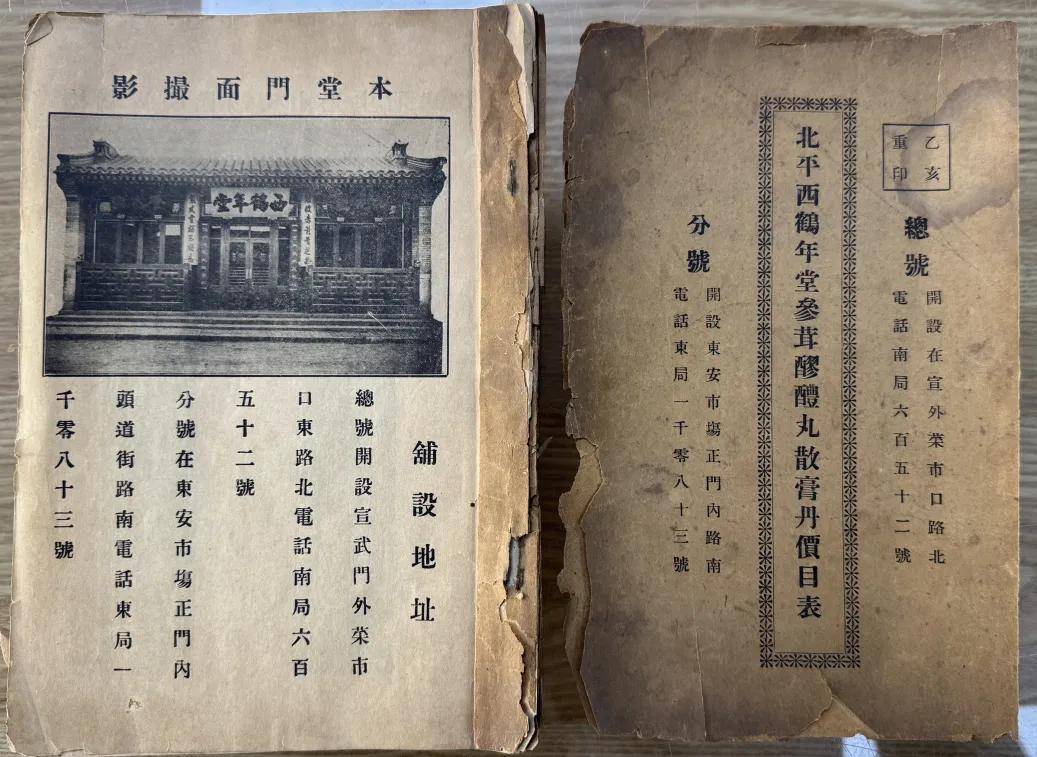 本堂門面撮影
西鶴年堂
舖設地址
總號開設宣武門外菜市
口東路北電話南局六百
五十二號
分號在東安市場正門內
頭道街路南電話東局一
千零八十三號
乙亥
重印
總號
開設在宣外菜市口路北
電話南局六百五十二號
北平西鶴年堂參茸膠醴丸散膏丹價目表
分號
開設東安市場正門內路南
電話東局一千零八十三號